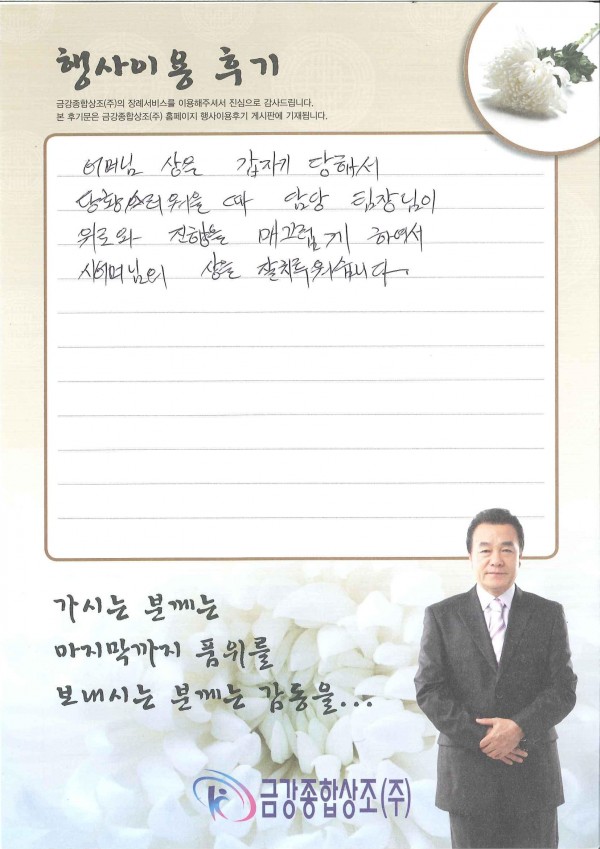 행사이용 후기
금강종합상조(주)의 장례서비스를 이용해주셔서 진심으로 감사드립니다.
본 후기문은 금강종합상조(주) 홈페이지 행사이용후기 게시판에 기재됩니다.
어머님 상을 갑자기 당해서
당황스러웠을 때 담당 팀장님이
위로와 진행을 매끄럽게 하여서
시어머님의 상을 잘치루웠습니다.
가시는 분께는
마지막까지 품위를
보내시는 분께는 감동을...
금강종합상조(주)